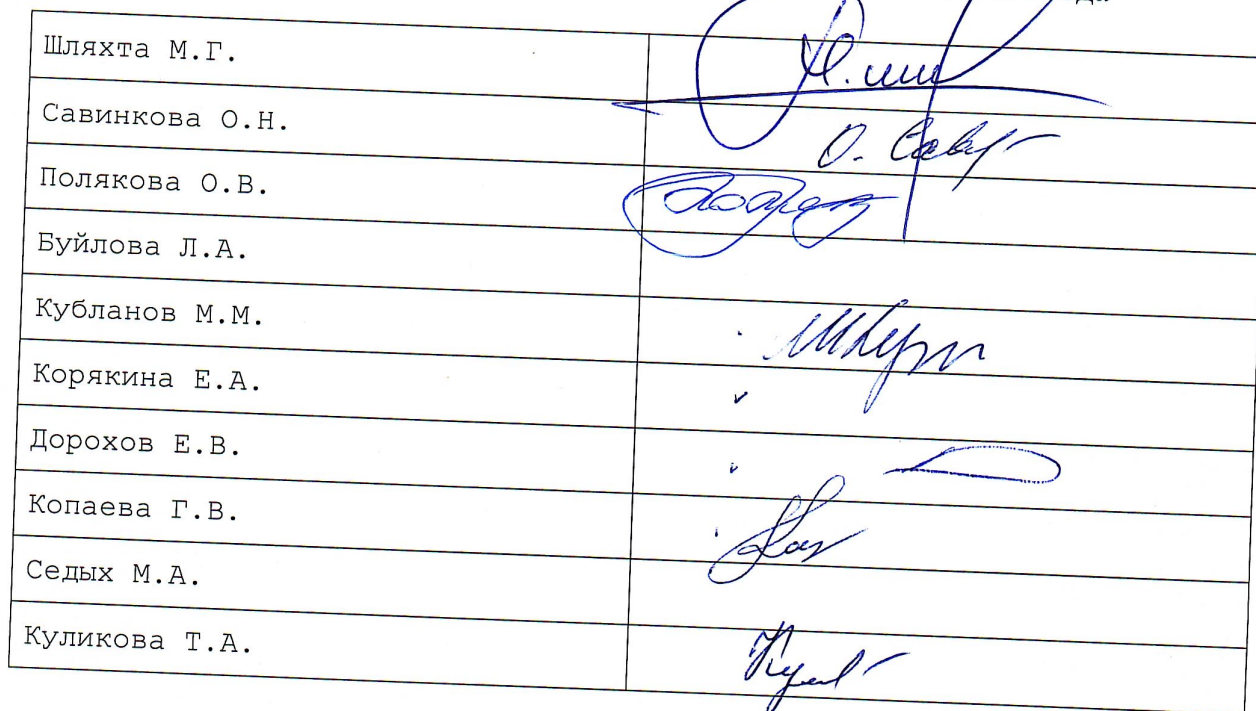 да
Шляхта М.Г.
Савинкова О.Н.
О. Сав
Полякова О.В.
Буйлова Л.А.
Кубланов М.М.
Корякина Е.А.
Дорохов Е.В.
Копаева Г.В.
Седых М.А.
Куликова Т.А.